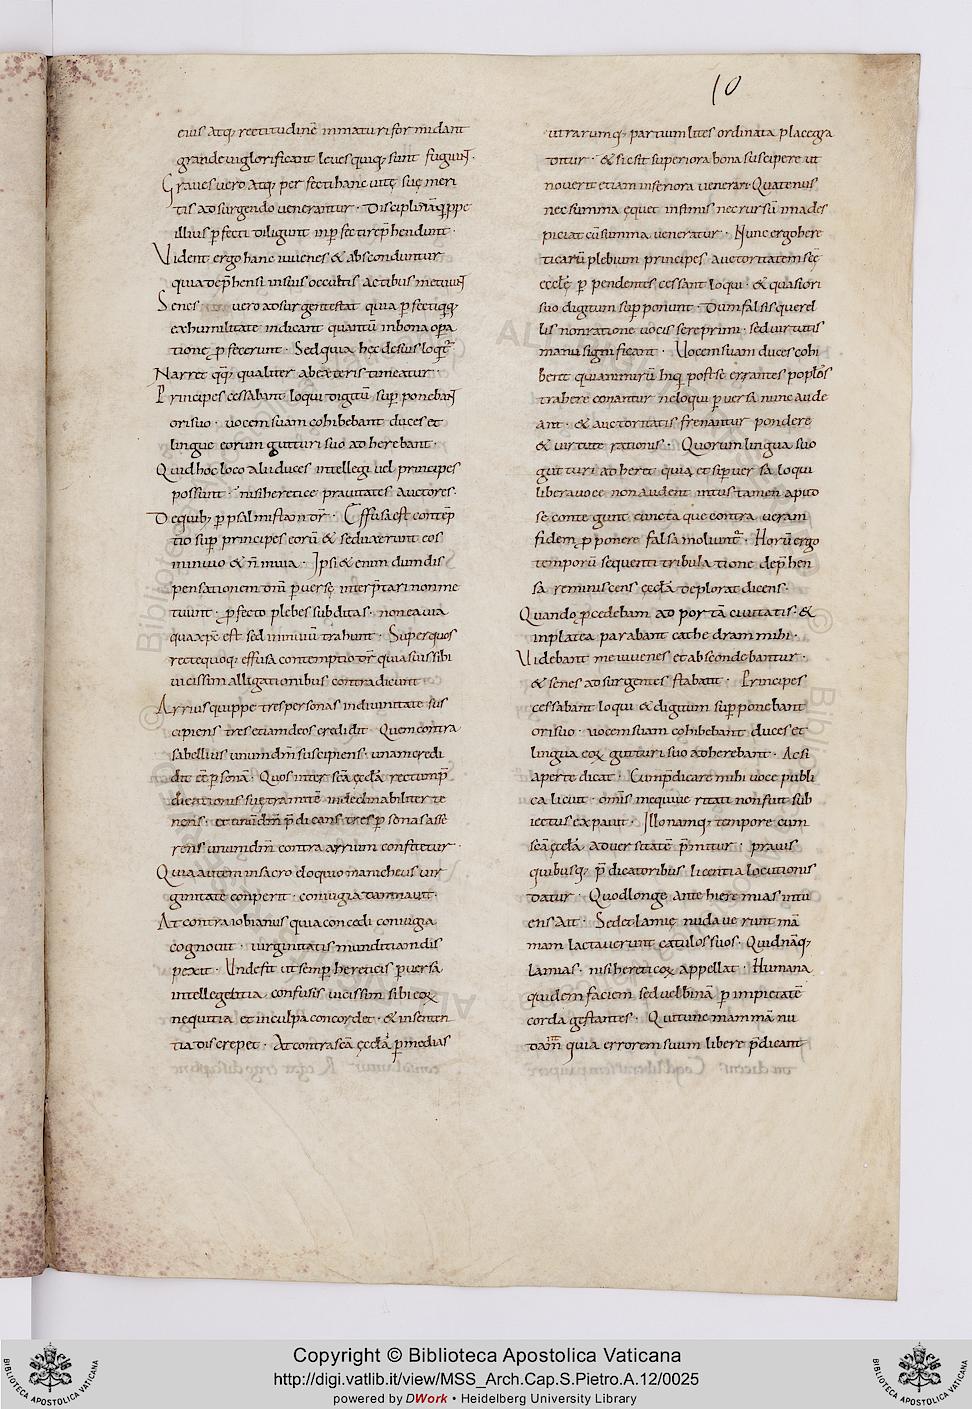 10
eius atq; rectitudinē inmaturi formidant
grandeui glorificant leues quiq; sunt fugiunt.
Graues vero atq; perfecti hanc uitę suę meri
tis adsurgendo uenerantur. Disciplinā q̄ppe
illius p̄fecti diligunt inp̄fecti rep̄hendunt.
Vident ergo hanc iuuenes & absconduntur
quia dep̄hensi in suis occultis actibus metuunt
Senes vero adsurgentes stat quia p̄fecti q̄q;
ex humilitate indicant quantū in bona opa
tione p̄fecerunt. Sed quia hec de suis loqt̄
Narret q̄q; qualiter ab exteris timeatur.
Principes cessabant loqui digitū sup̄ponebant
ori suo. uocem suam cohibebant duces et
lingue eorum gutturi suo adherebant.
Quid hoc loco alii duces intellegi uel principes
possunt. nisi heretice prauitates auctores.
De quib; p̄ psalmista dr̄. Effusa est contēp
tio sup̄ principes eorū & seduxerunt eos
in inuio & n̄ in uia. Ipsi & enim dum dis
pensationem dm̄ p̄uersę interp̄tari non me
tuunt. p̄fecto plebes subditas. non ea uia
qua xp̄c est sed in inuiū trahunt. Super quos
recte quoq; effusa contemptio dr̄ quia suis sibi
uicissim alligationibus contradicunt
Arrius quippe tres personas in diuinitate sus
cipiens tres etiam deos credidit. Quem contra
sabellius unum dm̄ suscipiens. unam credi
dit eē p̄sonā. Quos inter scā ęcclā rectū p̄
dicationis suę tramitē indeclinabiliter te
nens. et unū dm̄ p̄dicans. tres p̄sonas asse
rens unum dm̄ contra arrium confitetur.
Quia autem in sacro eloquio manicheus uir
ginitate conperit. coniugia damnauit.
At contra iobianus quia concedi coniugia
cognouit. uirginitatis munditiam dis
pexit. Unde fit ut semp̄ hereticis p̄uersa
intellegentia. confusis uicissim sibi eoꝝ
nequitia et in culpa concordet. & in senten
tia discrepet. At contra scā ęcclā p̄ medias
utrarumq; partium lites ordinata place gra
ditur. & si e sit superiora bona suscipere ut
nouerit etiam inferiora uenerari. Quatenus
nec summa ęquet infimis nec rursū ima des
piciat cū summa ueneratur. Nunc ergo here
ticarū plebium principes auctoritatem scę
ęcclę p̄pendentes cessant loqui. & quasi ori
suo digitum sup̄ponunt. Dum falsis querel
lis non ratione uocis se reprimi. sed uirtutis
manu significant. Uocem suam duces cohi
bent quia nimirū hi q post se errantes poplos
trahere conantur ne loqui p̄uersa nunc aude
ant. & auctoritatis frenantur pondere
& uirtute rationis. Quorum lingua suo
gutturi adheret quia et si p̄uersa loqui
libera uoce non audent intus tamen apud
se contegunt cuncta que contra ueram
fidem p̄ponere falsa moliunt̄. Horū ergo
temporū sequenti tribulatione dep̄hen
sa reminiscens ęcclā deplorat dicens.
Quando p̄cedebam ad portā ciuitatis. &
in platea parabant cathedram mihi.
Videbant me iuuenes et abscondebantur.
& senes adsurgentes stabant. Principes
cessabant loqui & digitum sup̄ponebant
ori suo. uocem suam cohibebant duces et
lingua eoꝝ gutturi suo adherebant. Ac si
aperte dicat. Cum p̄dicare mihi uoce publi
ca licuit. omīs me qui ueritati non fuit sub
iectus expauit. Illo namq; tempore cum
scā ęcclā aduersitatē p̄mitur. prauis
quibusq; p̄dicatoribus licentia locutionis
datur. Quod longe ante hieremias intu
ens ait. Sed et lamię nudauerunt mā
mam lactauerunt catulos suos. Quid nāq;
lamias. nisi hereticoꝝ appellat. Humana
quidem faciem sed uelbinā p̄ impietatē
corda gestantes. Qui tunc mammā nu
dant quia errorem suum libere p̄dicant
Copyright © Biblioteca Apostolica Vaticana
http://digi.vatlib.it/view/MSS_Arch.Cap.S.Pietro.A.12/0025
powered by DWork • Heidelberg University Library